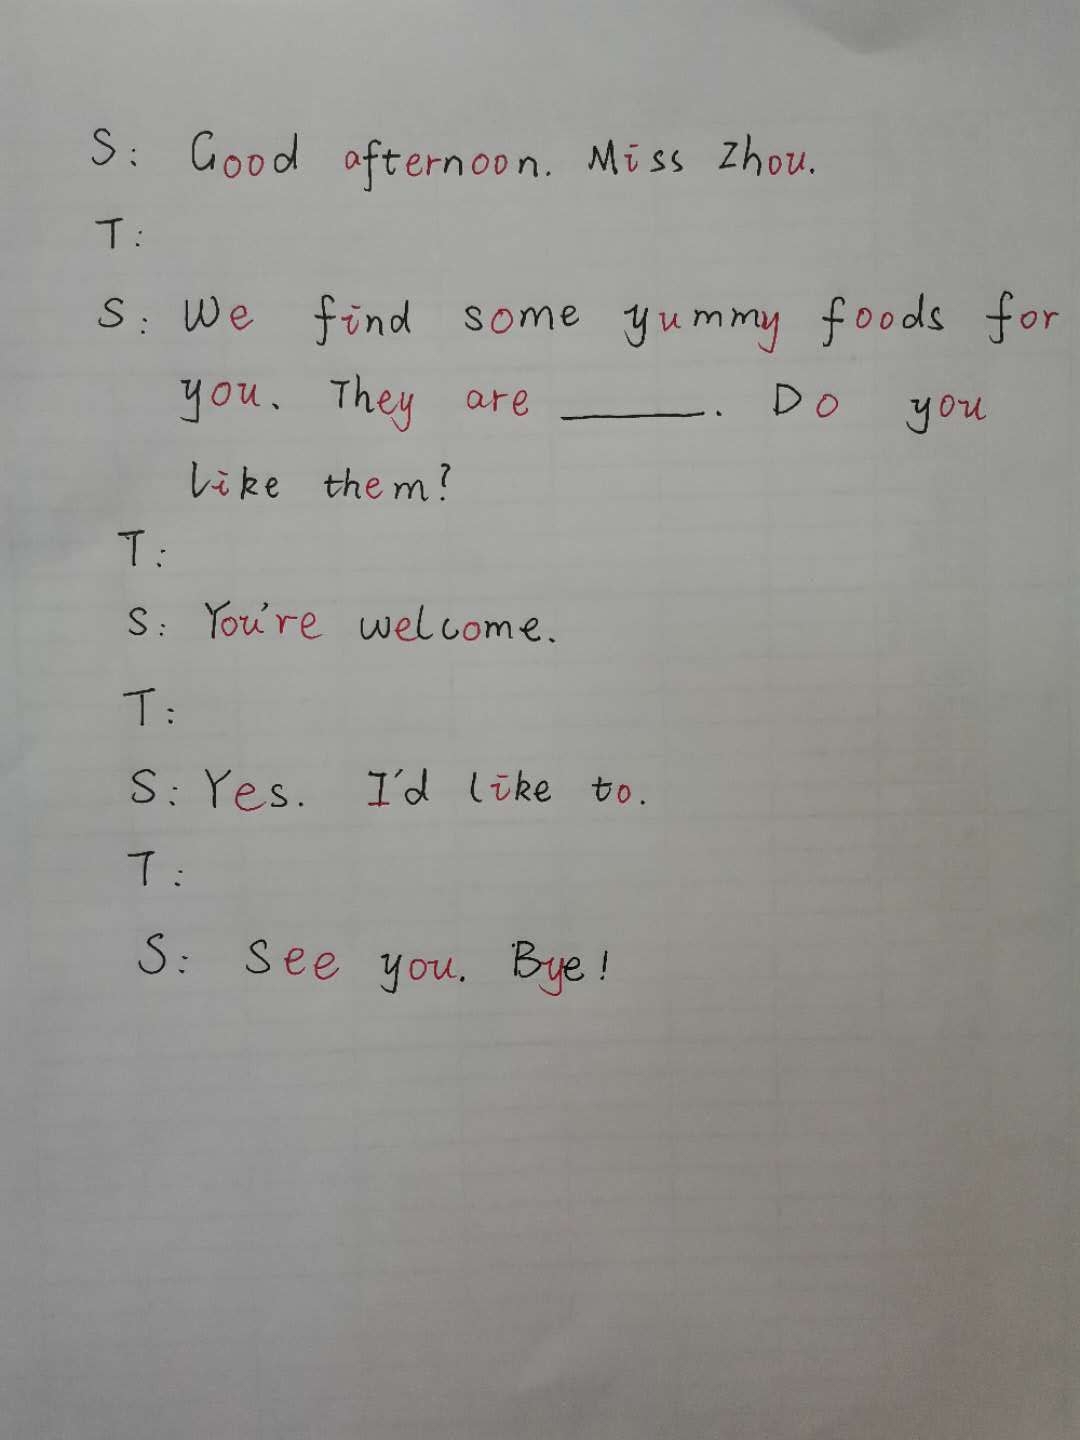 S: Good afternoon. Miss Zhou.
T:
S: We find some yummy foods for
you. They are ______. Do you
like them?
T:
S: You're welcome.
T:
S: Yes. I'd like to.
T:
S: See you. Bye!